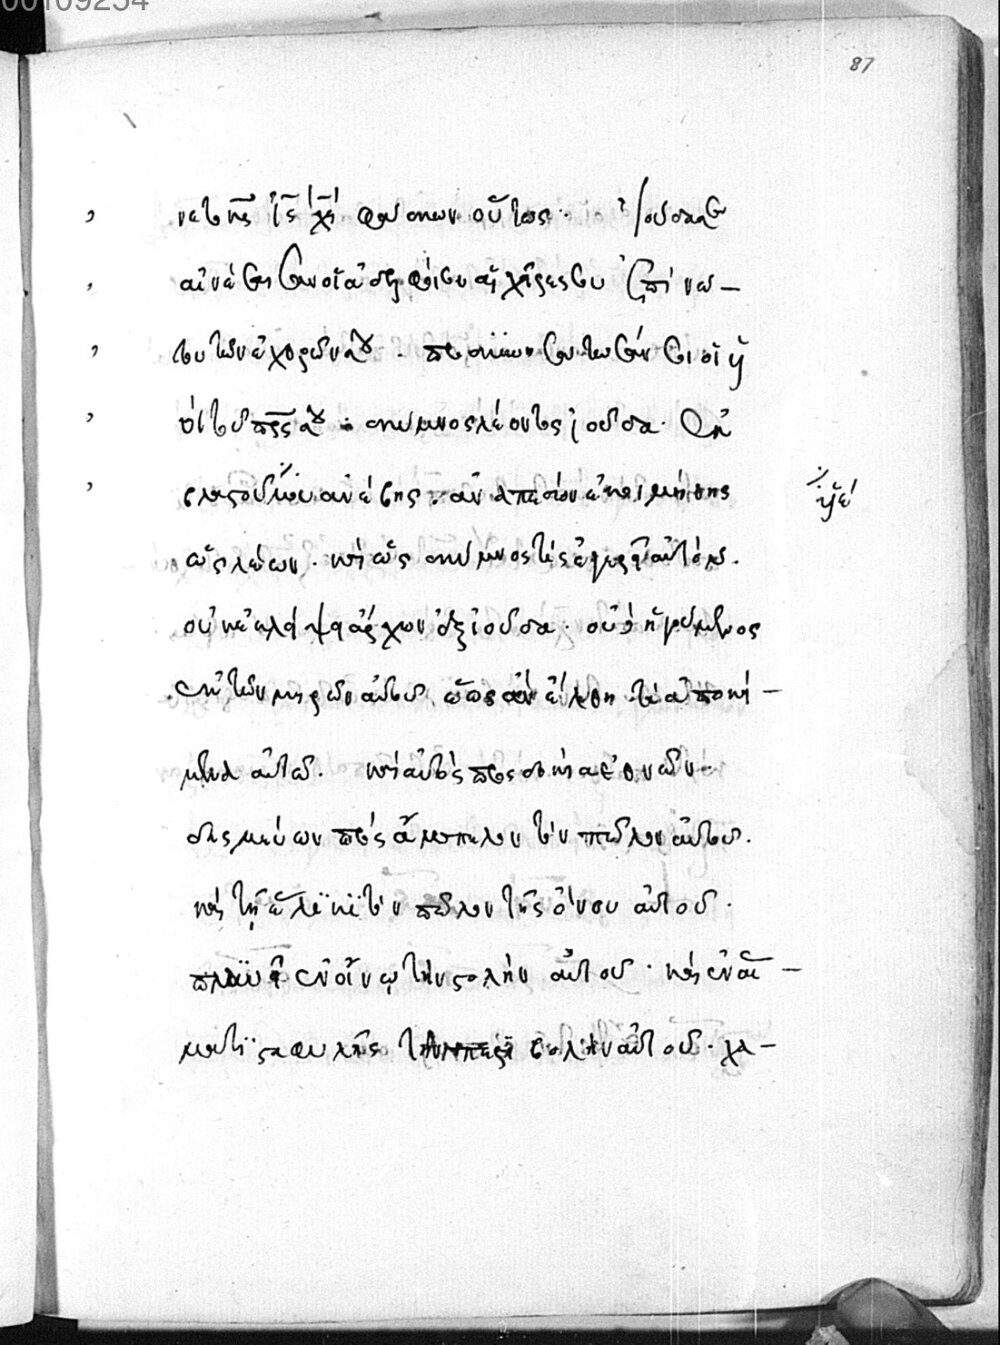 00109254
87
νατης ις χς φάσκων οὕτως · Ἰούδα σε
αἰνέσαισαν οἱ ἀδελφοί σου αἱ χεῖρές σου ἐπὶ νώ–
του τῶν ἐχθρῶν σου · προσκυνήσουσίν σοι οἱ υἱοὶ
τοῦ πρς σου · σκύμνος λέοντος ἰούδα · ἐκ
βλαστοῦ μου ἀνέβης · ἀναπεσὼν ἐκοιμήθης
υἱέ
ὡς λέων · καὶ ὡς σκύμνος τίς ἐγερεῖ αὐτόν .
οὐκ ἐκλείψει ἄρχων ἐξ ἰούδα · οὐδὲ ἡγούμενος
ἐκ τῶν μηρῶν αὐτοῦ ἕως ἂν ἔλθῃ τὰ ἀποκεί –
μενα αὐτῶ . καὶ αὐτὸς προσδοκία ἐθνῶν ·
δεσμεύων πρὸς ἄμπελον τὸν πῶλον αὐτοῦ .
καὶ τῇ ἕλικι τὸν πῶλον τῆς ὄνου αὐτοῦ .
πλυνεῖ ἐν οἴνῳ τὴν στολὴν αὐτοῦ · καὶ ἐν αἵ –
ματι σταφυλῆς τὴν περιβολὴν αὐτοῦ · χα –